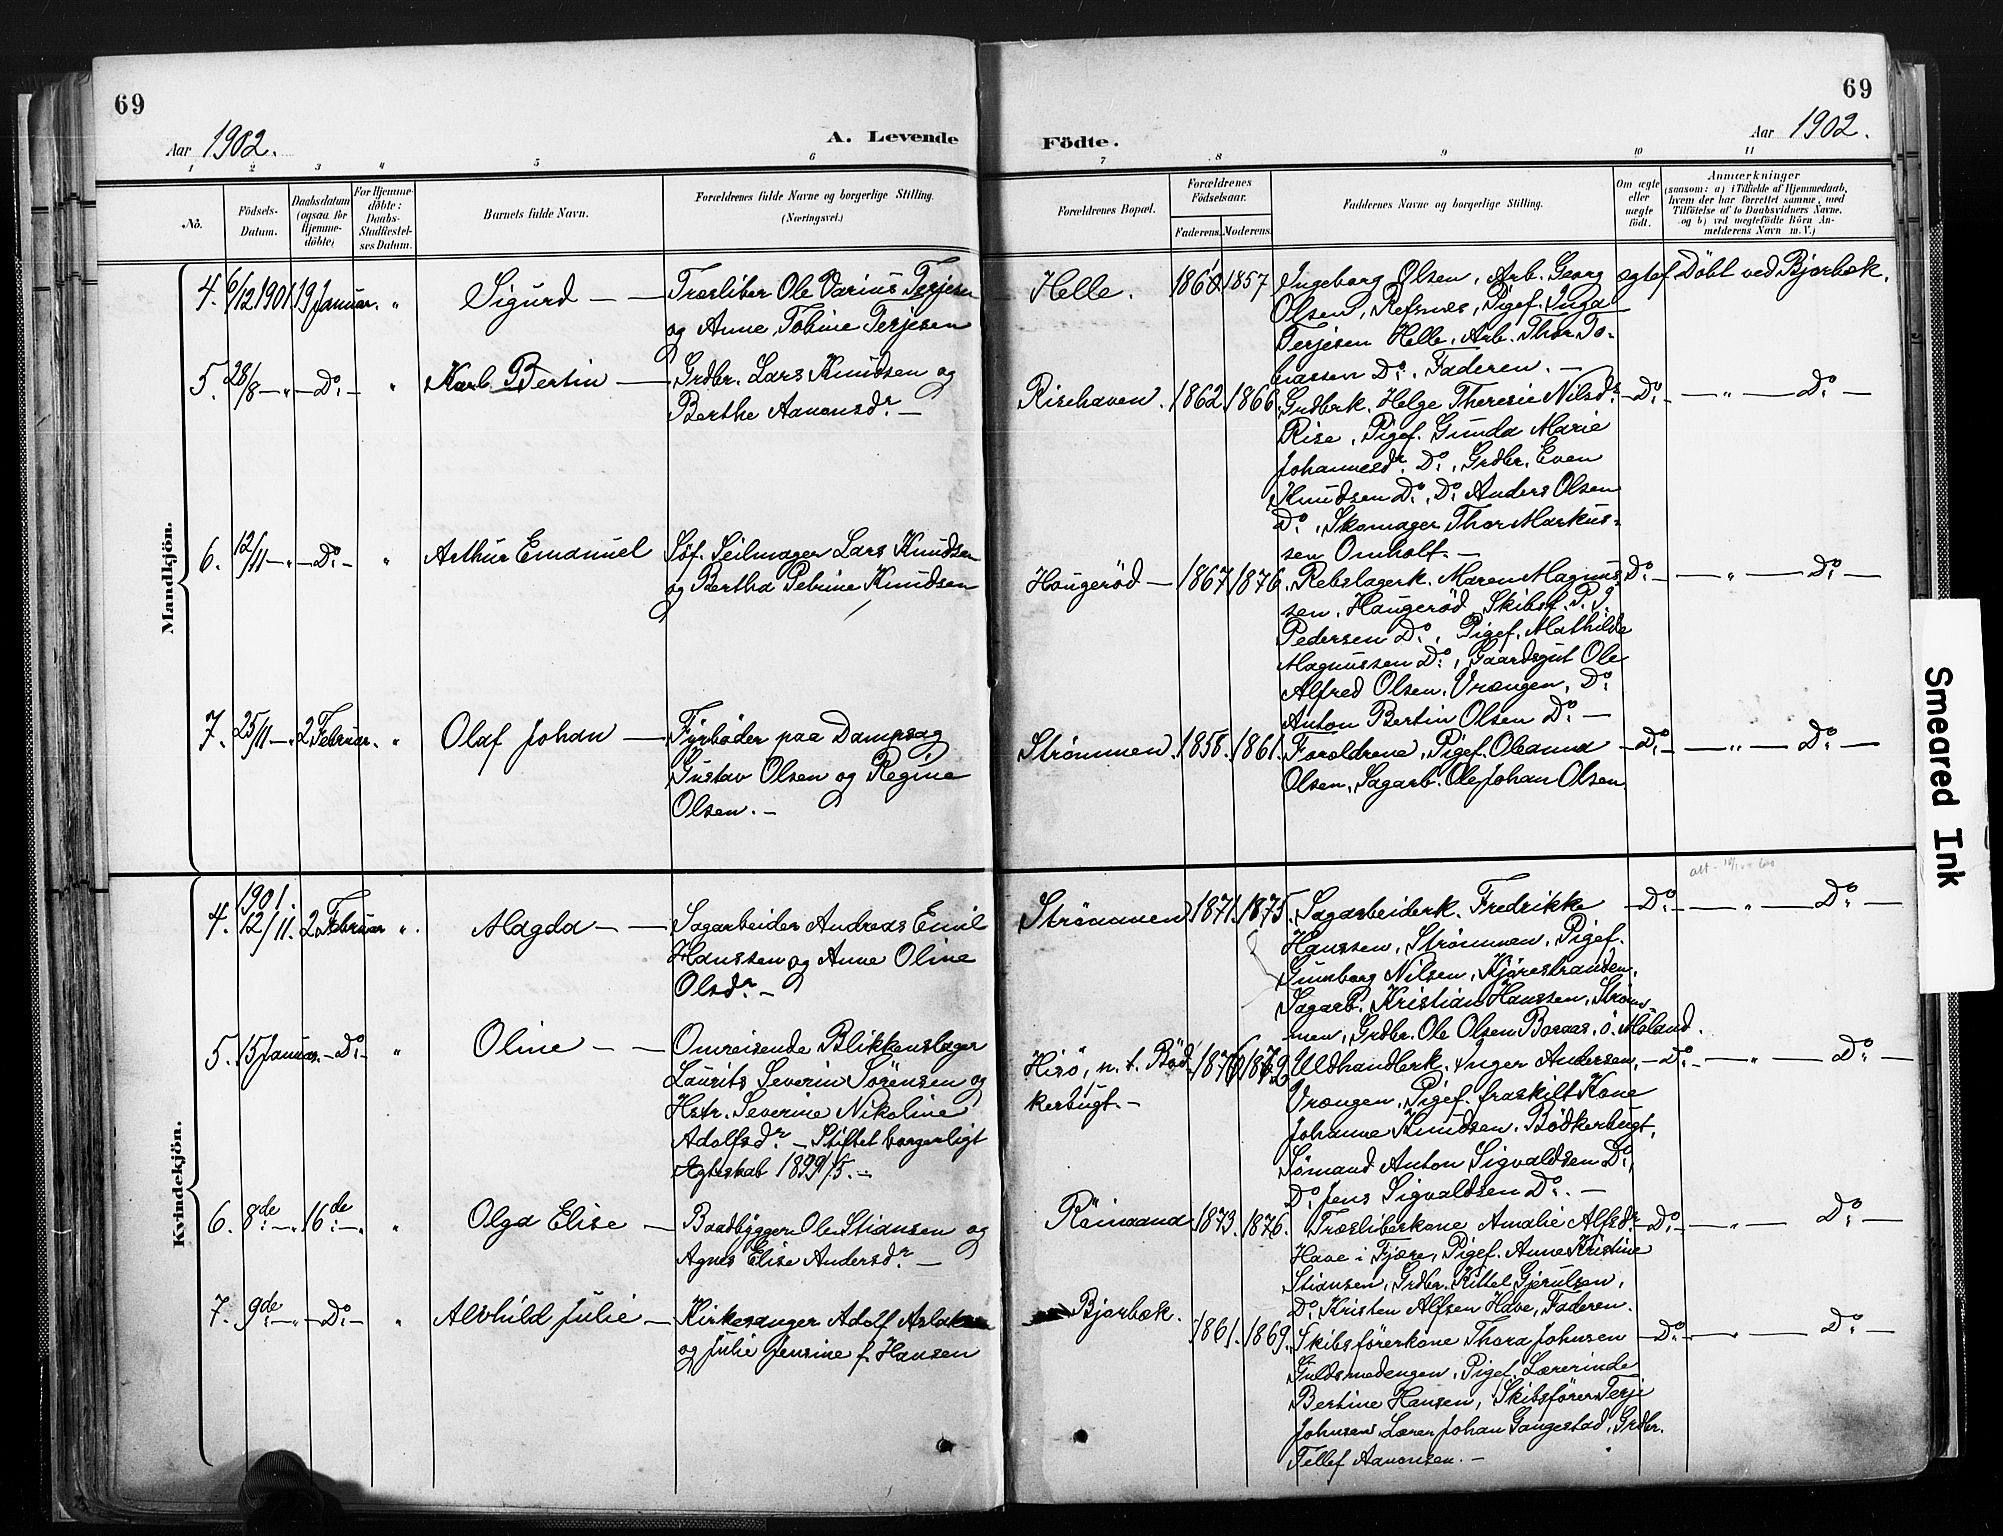 69
Aar 1902.
A. Levende
1 2 3 4 5 6
No.
Födsels-
Datum.
Daabsdatum
(ogsaa for
Hjemme-
döbte)
For Hjemme-
döbte:
Daabs-
Stadfæstel-
ses Datum.
Barnets fulde Navn.
Forældrenes fulde Navne og borgerlige Stilling.
(Næringsvei.)
Mandkjön.
4. 6/12 1901. 19 Januar. " Sigurd — — Træsliber Ole Darius Terjesen
og Anne Tobine Terjesen
5. 28/8 — " — Do — " Karl Bertin — Grdbr. Lars Knudsen og
Berthe Aanonsdr. —
6. 12/11 — " — Do — " Arthur Emanuel Söf. Seilmager Lars Knudsen
og Bertha Petrine Knudsen
7. 25/11 — " 2 Februar. " Olaf Johan — Fyrböder paa Dampsag
Gustav Olsen og Regine
Olsen. —
Kvindekjön.
1901.
4. 12/11. 2 Februar ". Magda — — Sagarbeider Andreas Emil
Hanssen og Anne Oline
Olsdr. —
5. 15 Januar. — Do — " Oline — — Omreisende Blikkenslager
Laurits Severin Sørensen og
Hstr. Severine Nikoline
Adolfsdr. — Stiftet borgerligt
Ægteskab 1899 /5. —
6. 8de — " 16de — " Olga Elise — Baadbygger Ole Stiansen og
Agnes Elise Andersdr. —
7. 9de — " — Do — " Alvhild Julie — Kirkesanger Adolf Aslaksen
og Julie Jensine f. Hansen
69
Aar 1902.
Födte.
7 8 9 10 11
Forældrenes Bopæl.
Forældrenes
Födselsaar.
Faderens. Moderens.
Faddernes Navne og borgerlige Stilling.
Om ægte
eller
uægte
födt.
Anmærkninger
(saasom: a) i Tilfælde af Hjemmedaab,
hvem der har forrettet samme, med
Tilföielse af to Daabsvidners Navne,
og b) ved uægtefödte Börn An-
melderens Navn m. V.)
Helle. 1860 1857 Ingeborg Olsen, Arb. Georg ægtef. Döbt ved Bjorbæk.
Olsen, Refsnes, Pigef. Inga
Terjesen Helle, Arb. Thor To-
biassen Do. Faderen. —
Risehaven. 1862. 1866. Grdbrk. Helge Theresie Nilsdr. — Do — " — Do —
Rise, Pigef. Gunda Marie
Johannesdr. Do, Grdbr. Even
Knudsen Do, Do Anders Olsen
Do, Skomager Thor Markus-
sen Omholt. —
Haugeröd — 1867. 1876. Rebslagerk. Maren Magnus- Do — " — Do —
sen, Haugeröd, Skibsf. P. J.
Pedersen Do, Pigef. Mathilde
Magnussen Do, Gaardsgut Ole
Alfred Olsen, Vrængen, Do
Anton Bertin Olsen Do —
Strømmen. 1858. 1861. Forældrene, Pigef. Oleanna — Do — " — Do —
Olsen, Sagarb. Ole Johan Olsen
Strømmen 1871. 1875. Sagarbeiderk. Fredrikke — Do — " — Do —
Hanssen, Strømmen, Pigef.
Gunborg Nilsen, Kjörestranden,
Sagarb. Kristian Hanssen, Strøm-
men, Grdbr. Ole Olsen Boraas, ö. Moland.
Hisö, n. t. Böd- 1876 1872 Uldhandlerk. Inger Andersen, — Do — " — Do —
kerbugt. —
Vrængen, Pigef. fraskilt Kone
Johanne Knudsen, Bödkerbugt,
Sömand Anton Sigvaldsen Do,
Do Jens Sigvaldsen Do. —
Röinaand 1873. 1876. Træsliberkone Amalie Alfsdr. — Do — " — Do —
Have i Fjære, Pigef. Anne Kristine
Stiansen, Grdbr. Kittel Gjerulsen,
Do Kristen Alfsen Have, Faderen.
Bjorbæk. 1861. 1869. Skibsförerkone Thora Johnsen — Do — " — Do —
Guldsmedengen, Pigef. Lærerinde
Bertine Hansen, Skibsförer Terje
Johnsen, Lærer Johan Gangestad, Grdbr.
Tellef Aanonsen. —
Smeared Ink